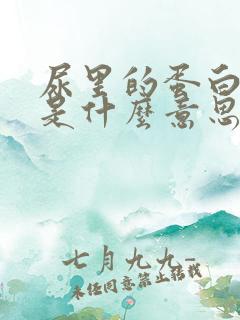 尿里的蛋白
是什麼意思
七月九九-
未经同意禁止转载